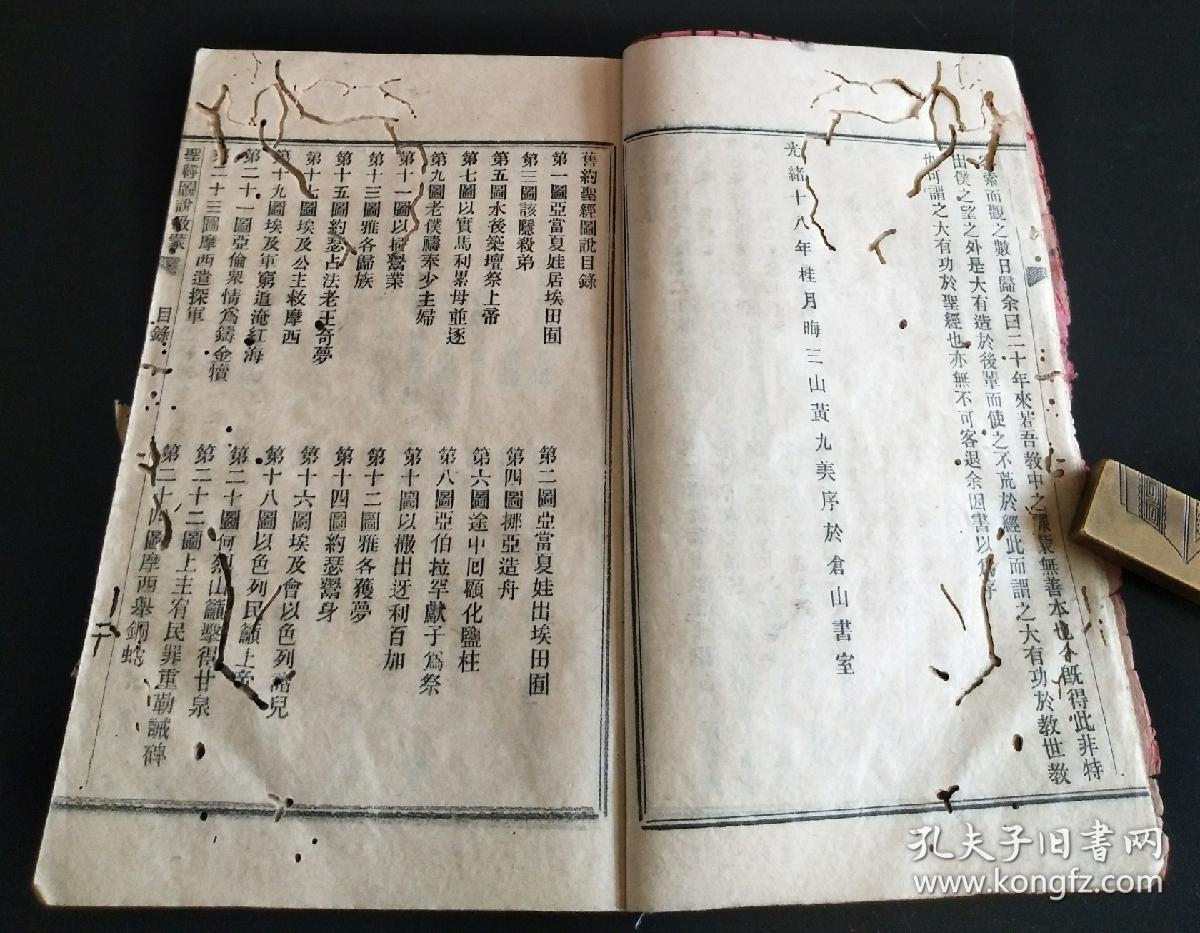 索而觀之數日歸余曰二十年來若吾教中之課蒙無善本也今既得此非特
出僕之望之外是大有造於後輩而使之不荒於經此而謂之大有功於教世教
世可謂之大有功於聖經也亦無不可客退余因書以為序
光緒十八年桂月晦三山黃九美序於倉山書室
舊約聖經圖說目錄
第一圖亞當夏娃居埃田囿
第二圖亞當夏娃出埃田囿
第三圖該隱殺弟
第四圖挪亞造舟
第五圖水後築壇祭上帝
第六圖途中回顧化鹽柱
第七圖以實馬利累母並逐
第八圖亞伯拉罕獻子為祭
第九圖老僕禱奉少主婦
第十圖以撒出迓利百加
第十一圖以掃鬻業
第十二圖雅各獲夢
第十三圖雅各歸族
第十四圖約瑟鬻身
第十五圖約瑟占法老王奇夢
第十六圖埃及會以色列諸兒
第十七圖埃及公主救摩西
第十八圖以色列民籲上帝
第十九圖埃及軍窮追淹紅海
第二十圖何烈山籲擊得甘泉
第二十一圖亞倫衆情為鑄金犢
第二十二圖上主宥民罪重勒誡碑
第二十三圖摩西遣探軍
第二十四圖摩西舉銅蛇
聖經圖說啟蒙
目錄
孔夫子旧书网
www.kongfz.com